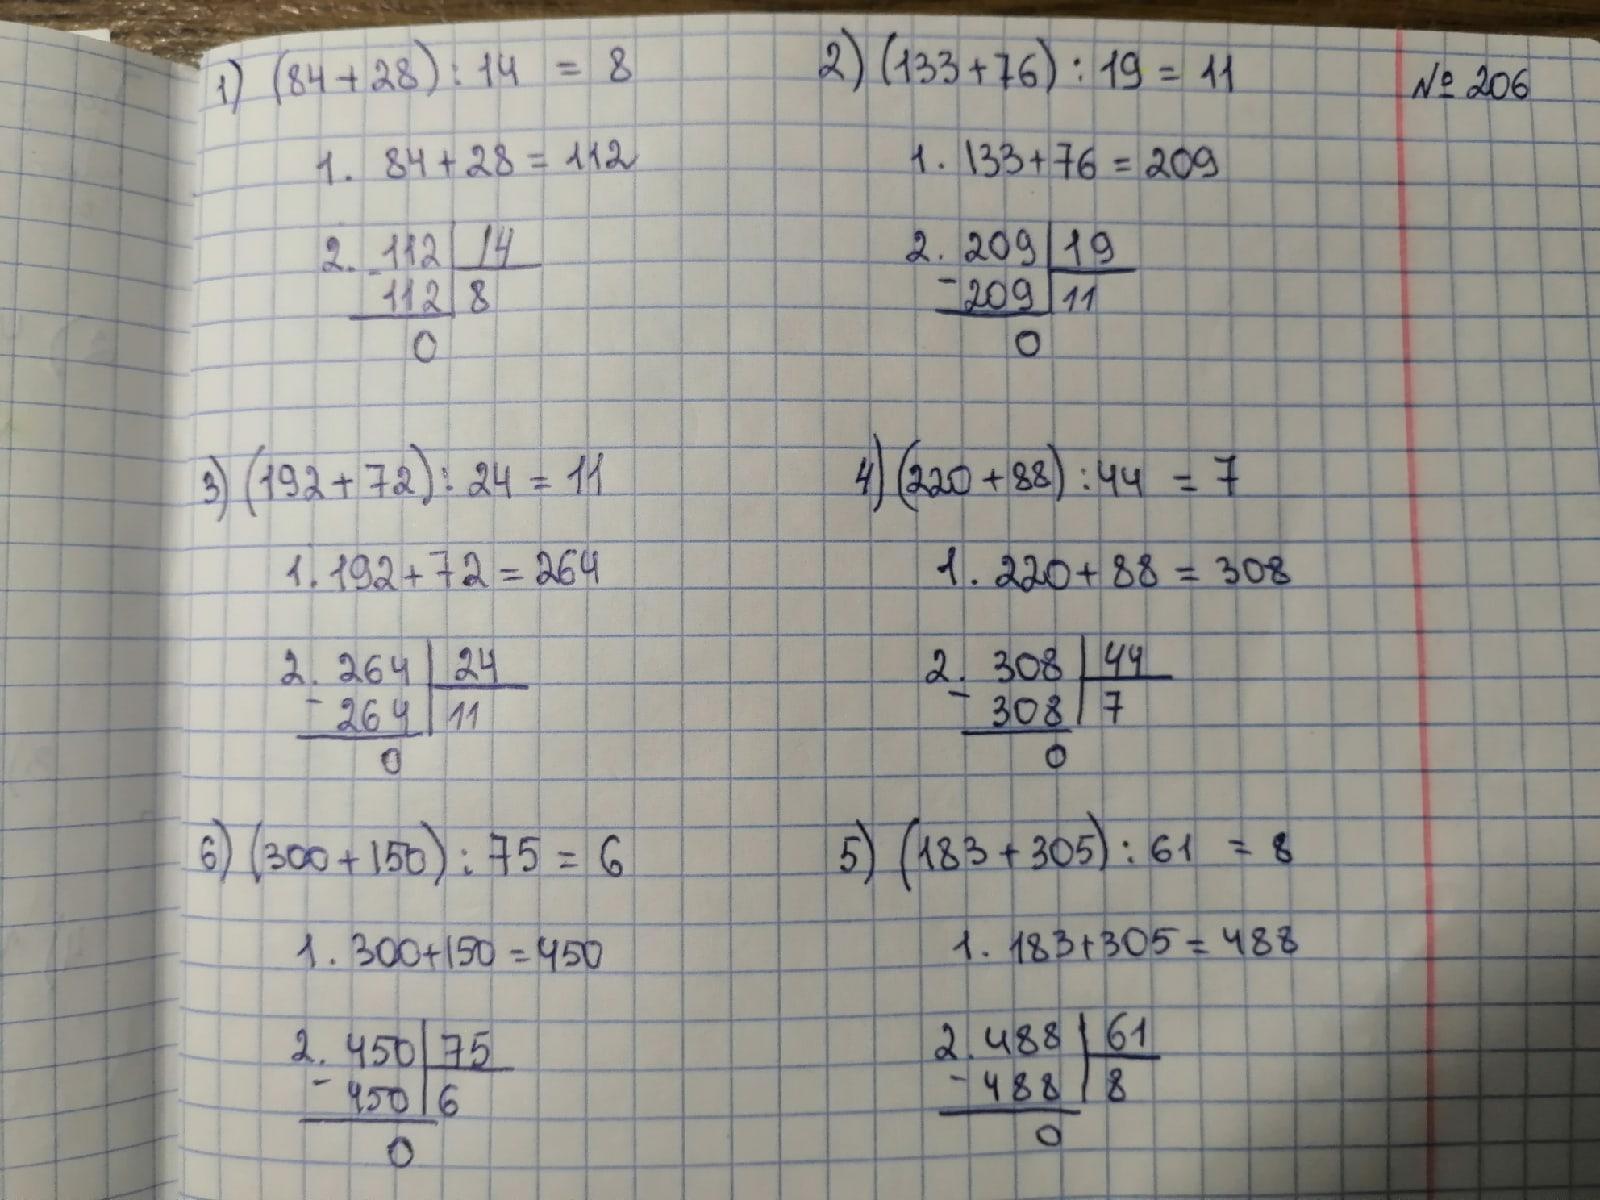 1) (84+28):14 = 8
1. 84+28=112
2. 112 | 14
- 112 | 8
0
2) (133+76):19=11
1. 133+76=209
2. 209 | 19
- 209 | 11
0
№ 206
3) (192+72):24=11
1. 192+72=264
2. 264 | 24
- 264 | 11
0
4) (220+88):44 = 7
1. 220+88=308
2. 308 | 44
- 308 | 7
0
6) (300+150):75=6
1. 300+150=450
2. 450 | 75
- 450 | 6
0
5) (183+305):61 = 8
1. 183+305=488
2. 488 | 61
- 488 | 8
0